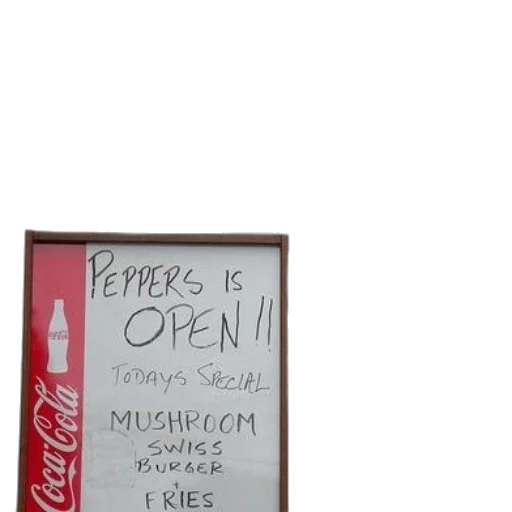 PEPPERS IS
OPEN!!
TODAYS SPECIAL
MUSHROOM
SWISS
BURGER
+
FRIES
Coca-Cola
Coca-Cola